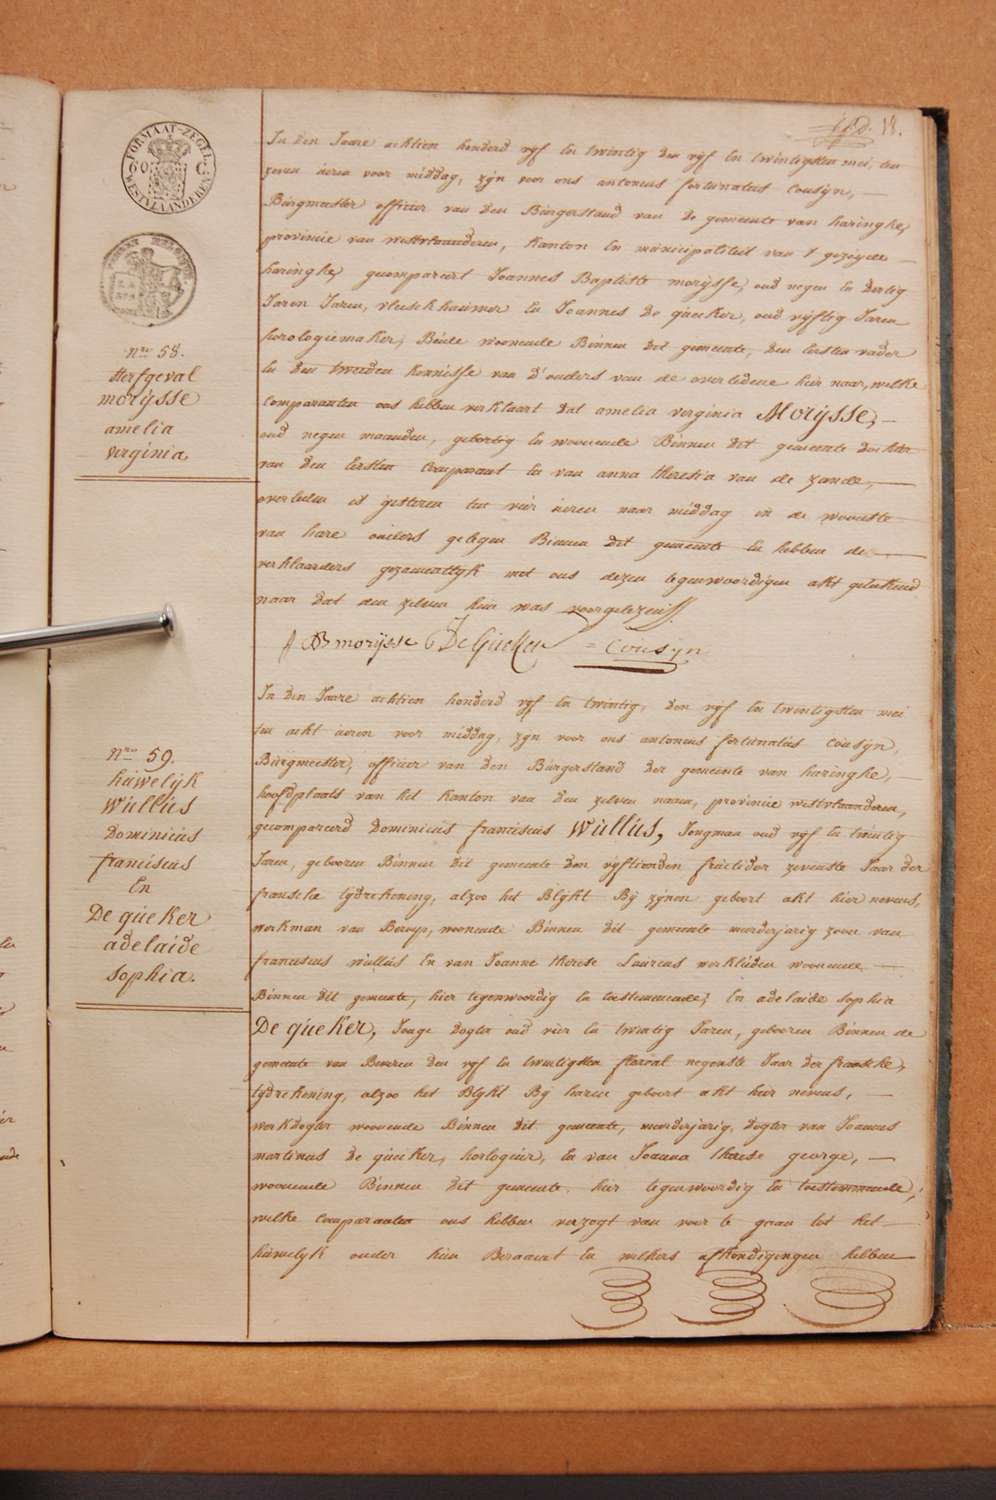 18.
FORMAAT-ZEGEL
60 C
WESTVLAANDEREN
Nro 58.
sterfgeval
morÿsse
amelia
virginia
In den Jaare achtien honderd vyf en twintig den vyf en twintigsten mei, ten
zeven ueren voor middag, zÿn voor ons antonius fortunatus Cousÿn,
Burgmeester officier van den Burgerstand van de gemeente van haringhe,
provincie van westvlaanderen, kanton en municipaliteit van 't gezeyde
haringhe, gecompareert Joannes Baptiste morÿsse, oud negen en dertig
Jaren Jaren, vleeschhauwer en Joannes De queker, oud vyftig Jaren
horologiemaker, Beide woonende Binnen dit gemeente, den eersten vader
en den tweeden kennisse van d'ouders van de overledene hier naar, welke
comparanten ons hebben verklaart dat amelia virginia Morÿsse,
oud negen maanden, gebortig en woonende Binnen dit gemeente dochter
van den eersten comparant en van anna theresia van de zande,
overleden is gisteren ten vier ueren naar middag in de wooniste
van hare ouders gelegen Binnen dit gemeente en hebben de
verklaarders gezamentlyk met ons dezen tegenwoordigen akt geteekend
naar dat den zelven hun was voorgelezen
J B morÿsse J De Queker Cousÿn
Nro 59.
huwelÿk
Wullus
Dominicus
franciscus
En
De queker
adelaide
sophia.
In den Jaare achtien honderd vyf en twintig, den vyf en twintigsten mei
ten acht ueren voor middag, zyn voor ons antonius fortunatus Cousÿn,
Burgmeester, officier van den Burgerstand der gemeente van haringhe,
hoofdplaats van het kanton van den zelven naam, provincie westvlaanderen,
gecompareerd Dominicus franciscus Wullus, Jongman oud vyf en twintig
Jaren, gebooren Binnen dit gemeente den vyftienden fructidor zevenste Jaar der
fransche tydrekening, alzoo het Blykt By zynen geboort akt hier nevens,
werkman van Beroep, woonende Binnen dit gemeente meerderjarig zoon van
franciscus wullus en van Joanne therese Laureus werklieden woonende
Binnen dit gemeente, hier tegenwoordig en toestemmende; En adelaide sophia
De queker, Jonge dogter oud vier en twintig Jaren, gebooren Binnen de
gemeente van Beveren den vyf en twintigsten floreal negenste Jaar der fransche,
tydrekening, alzoo het Blykt By haren geboort akt hier nevens,
werkdogter woonende Binnen dit gemeente, meerderjarig, dogter van Joannes
martinus de queker, horlogier, en van Joanna therese george,
woonende Binnen dit gemeente hier tegenwoordig en toestemmende,
welke comparanten ons hebben verzogt van voor te gaan tot het
huwelyk onder hun Beraamt en welkers afkondigingen hebben